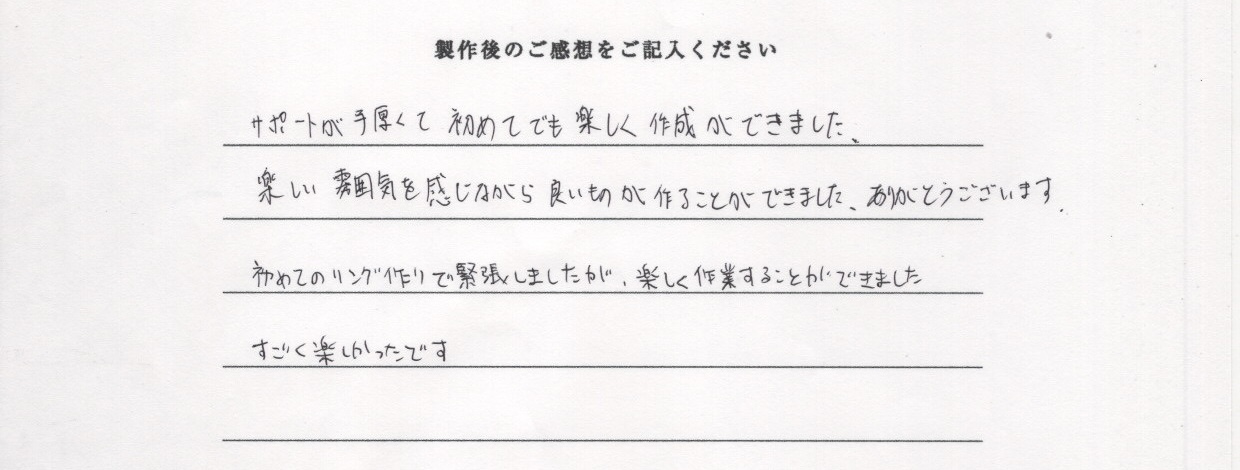 製作後のご感想をご記入ください
サポートが手厚くて初めてでも楽しく作成ができました、
楽しい雰囲気を感じながら良いものが作ることができました、ありがとうございます.
初めてのリング作りで緊張しましたが、楽しく作業することができました
すごく楽しかったです